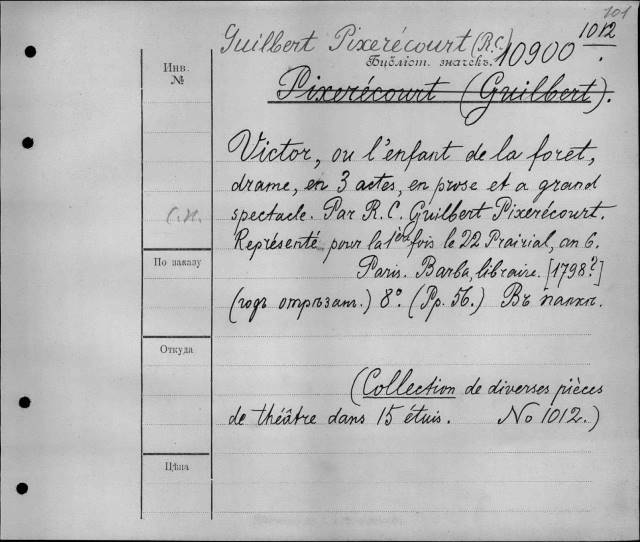 101
Guilbert Pixerécourt (R.C.)
1012
Инв. №
Библіот. значекъ.
10900
Pixerécourt (Guilbert).
Victor, ou l'enfant de la foret,
drame, en 3 actes, en prose et a grand
spectacle. Par R. C. Guilbert Pixerécourt.
Représenté pour la 1ère fois le 22 Prairial, an 6.
По заказу
Paris. Barba, libraire. [1798?]
(годъ отрѣзан.) 8º. (Pp. 56.) Въ папкѣ.
Откуда
(Collection de diverses pièces
de théâtre dans 15 étuis. No 1012.)
Цѣна